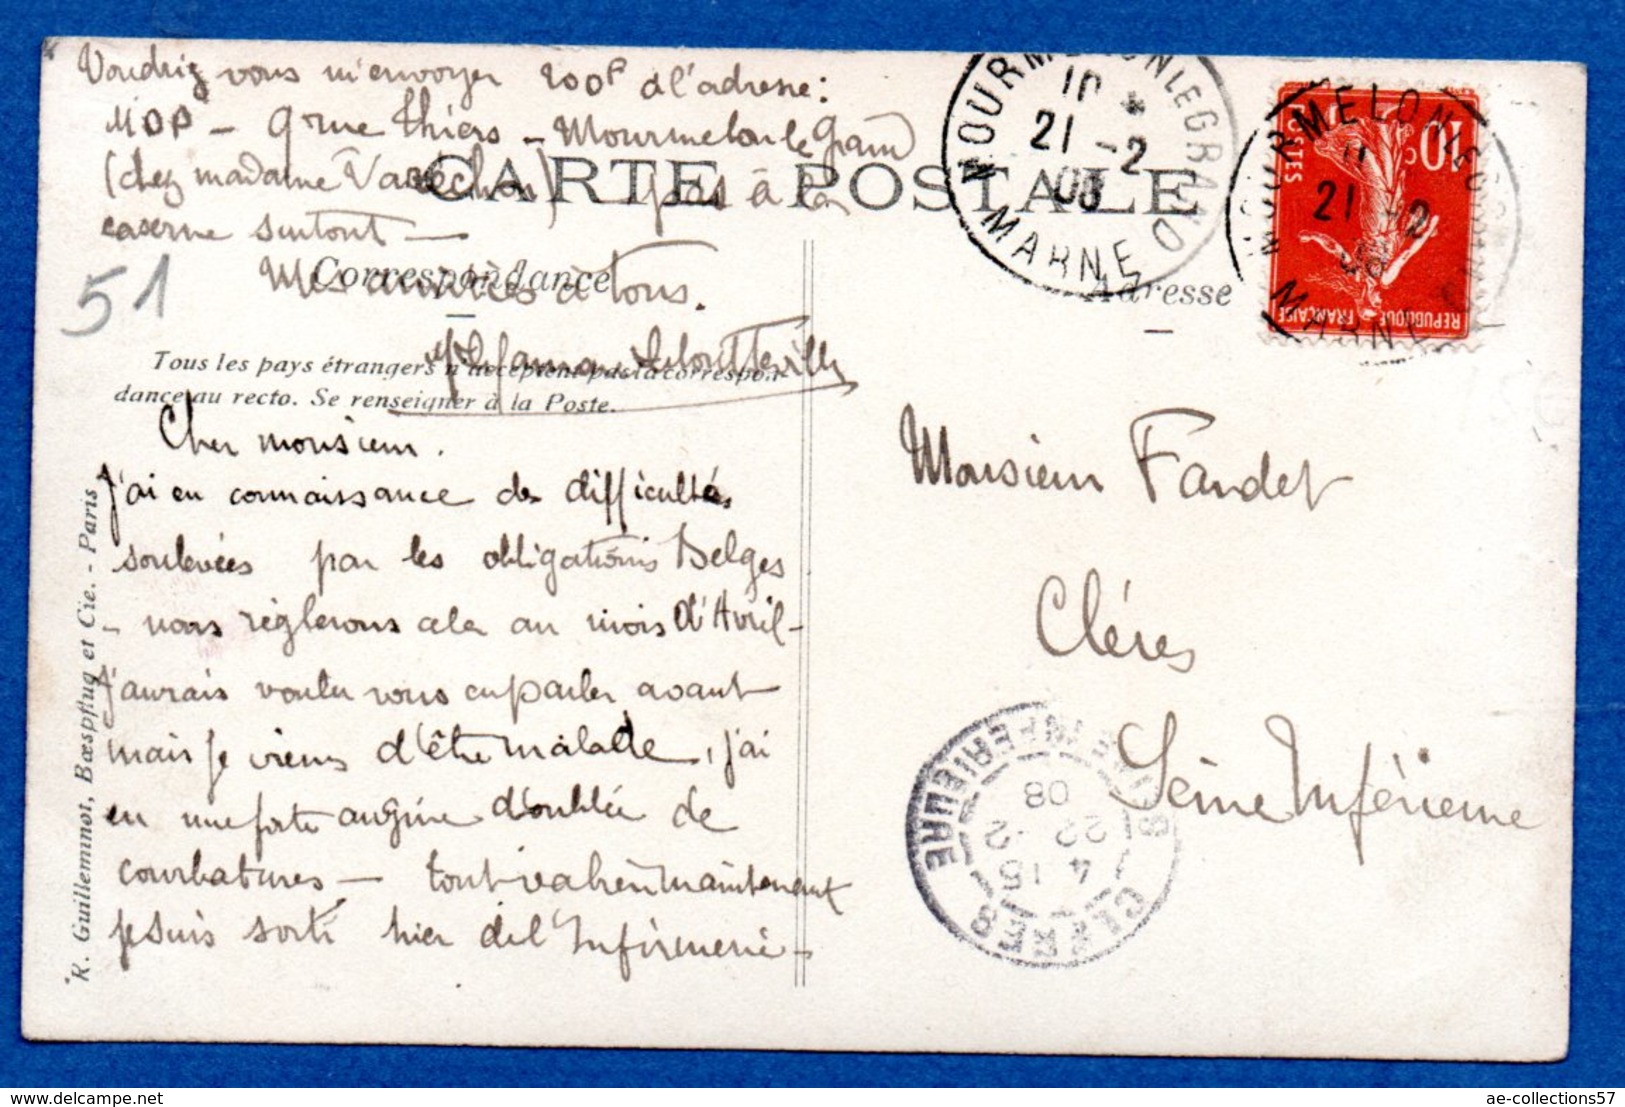 Voudriez vous m'envoyer 200f à l'adresse:
MOP - 9 rue Thiers - Mourmelon le Grand
(chez madame Varechon) pas à la
caserne surtout -
Mes amitiés à tous.
CARTE POSTALE
Correspondance
Adresse
Tous les pays étrangers n'acceptent pas la correspon-
dance au recto. Se renseigner à la Poste.
51
Cher monsieur.
J'ai eu connaissance des difficultés
soulevées par les obligations Belges
- nous règlerons cela au mois d'Avril -
J'aurais voulu vous en parler avant
mais je viens d'être malade, j'ai
eu une forte angine doublée de
courbatures - tout va bien maintenant
je suis sorti hier de l'Infirmerie -
Monsieur Faudet
Clères
Seine Inférieure
R. Guilleminot, Bœspflug et Cie. - Paris
MOURMELON LE GRAND
10
21 -2
08
MARNE
MOURMELON LE GRAND
21 -2
08
MARNE
10 c
POSTES
REPUBLIQUE FRANÇAISE
CLERES
4 15
22 -2
08
SEINE INFERIEURE
ae-collections57